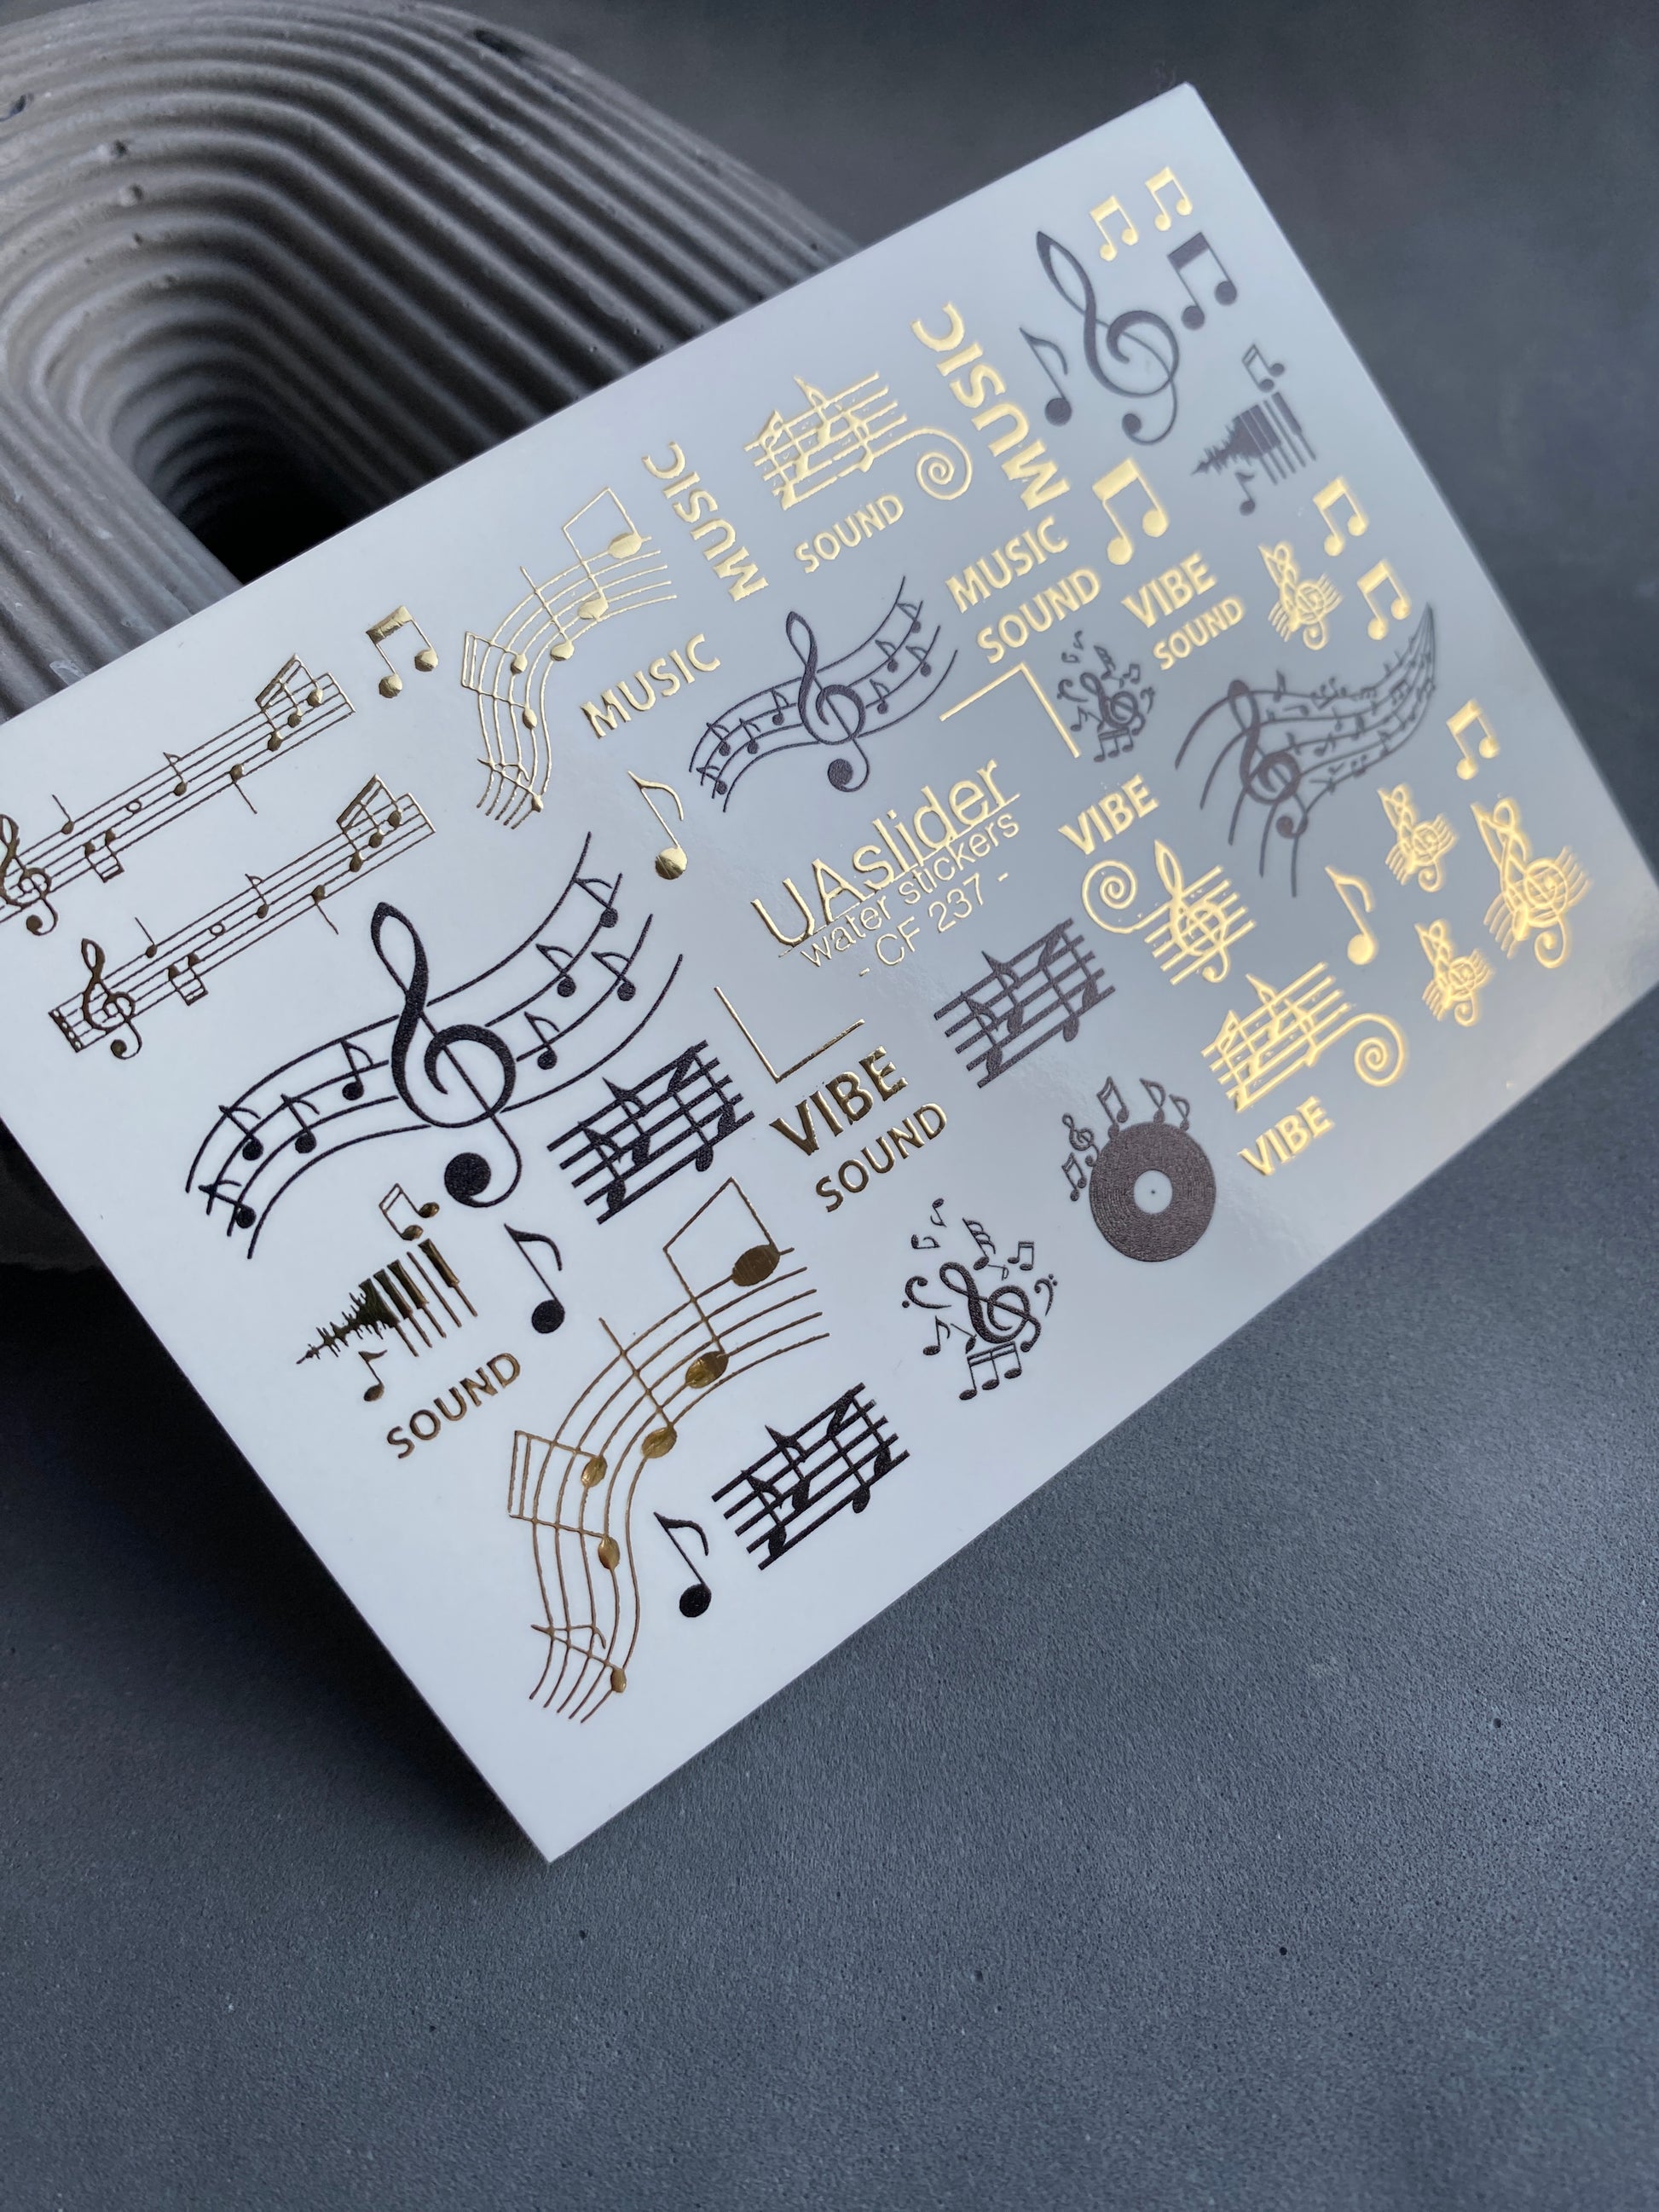 MUSIC
MUSIC
SOUND
MUSIC
MUSIC
SOUND
VIBE
SOUND
MUSIC
UAslider
water stickers
- CF 237 -
VIBE
VIBE
SOUND
VIBE
SOUND